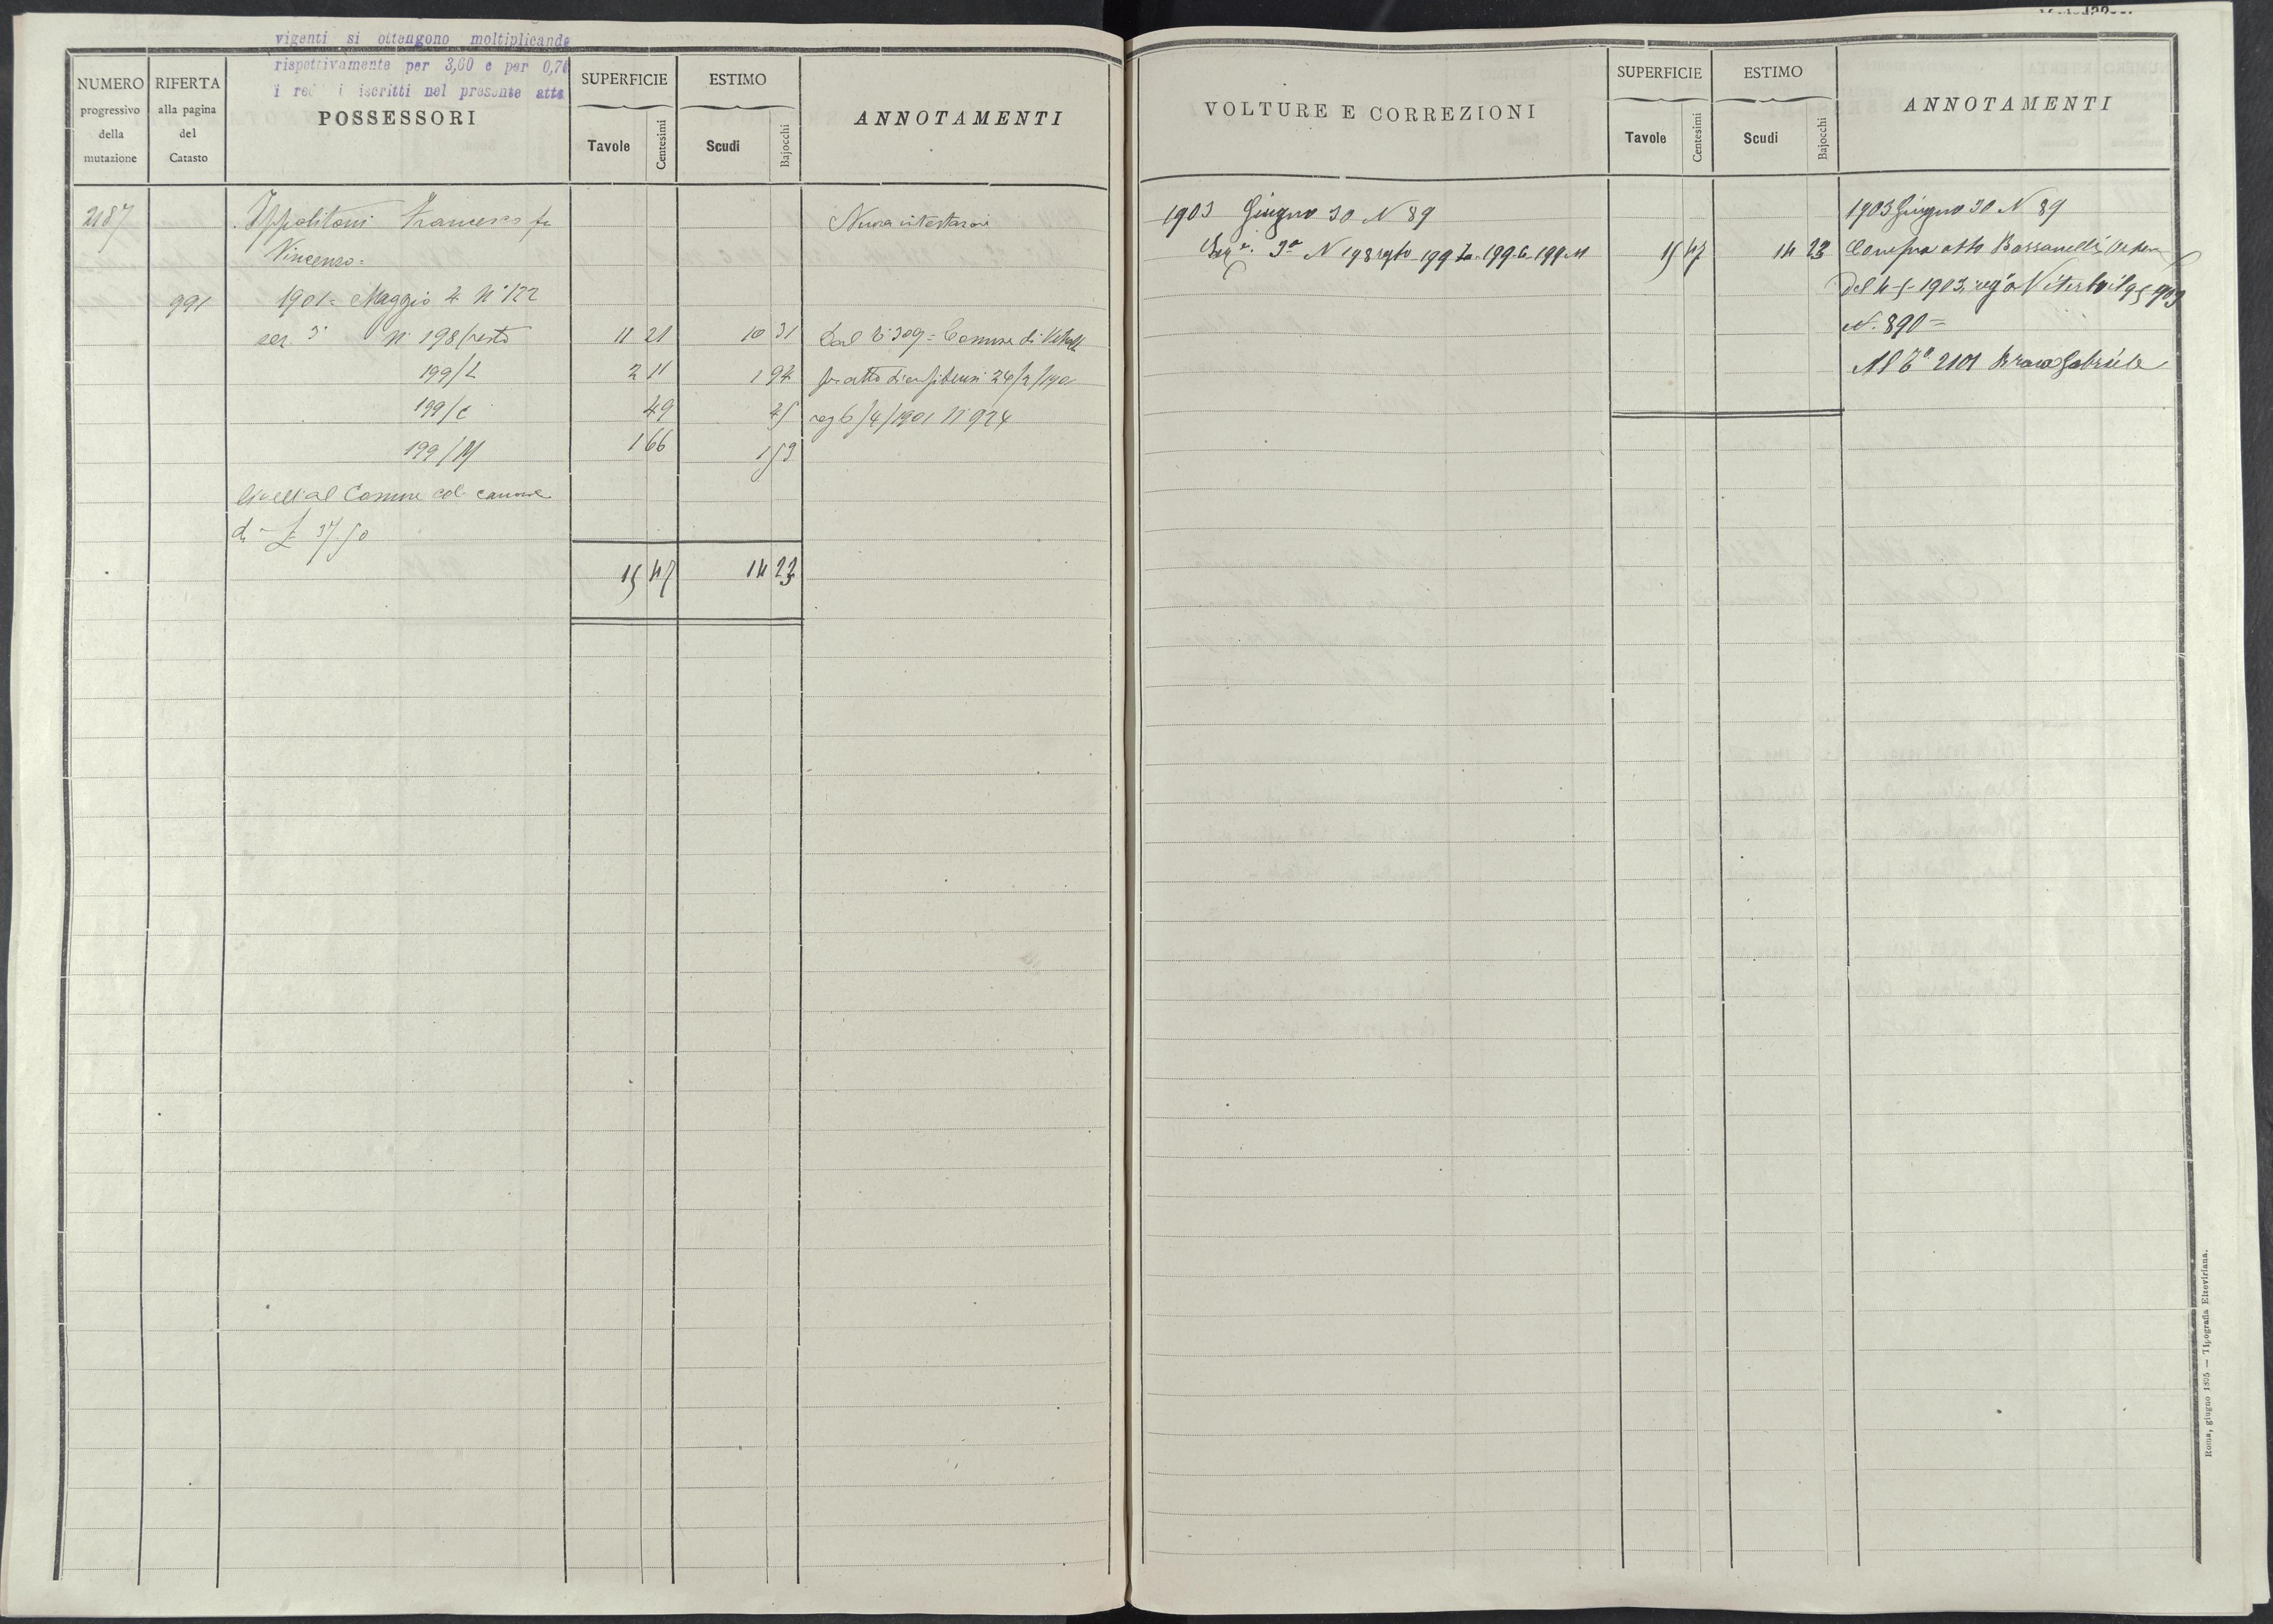 vigenti si ottengono moltiplicando
rispettivamente per 3,60 e per 0,70
i iscritti nel presente atto
NUMERO progressivo della mutazione
RIFERTA alla pagina del Catasto
POSSESSORI
SUPERFICIE
Tavole Centesimi
ESTIMO
Scudi Bajocchi
ANNOTAMENTI
2187 Ippolitoni Francesco fu Nuova intestazioni
Vincenzo =
991 1901 = Maggio 4 N° 122
sez 3ª N° 198/resto 11 21 10 31 Dal 309 = Comune di
199/L 2 11 1 94 per atto di enfiteusi
199/C 49 45 reg 6/4/1901 N° 924
199/M 1 66 1 53
livell al Comune col canone
di £ 37.50
15 47 14 23
VOLTURE E CORREZIONI
SUPERFICIE
Tavole Centesimi
ESTIMO
Scudi Bajocchi
ANNOTAMENTI
1903 Giugno 30 N 89 1903 Giugno 30 N 89
Sez. 3ª N 198 199 L - 199 C - 199 M 15 47 14 23 Compra atto Bassanelli
del 4-5-1903, reg° Viterbo il
N. 890 =
Al 2101 Gabriele
Roma, giugno 1895 — Tipografia Elzeviriana.